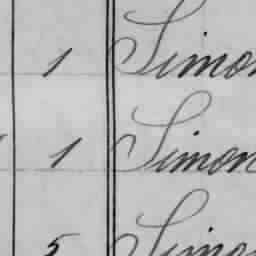 1 Simon
1 Simon
5 Simon